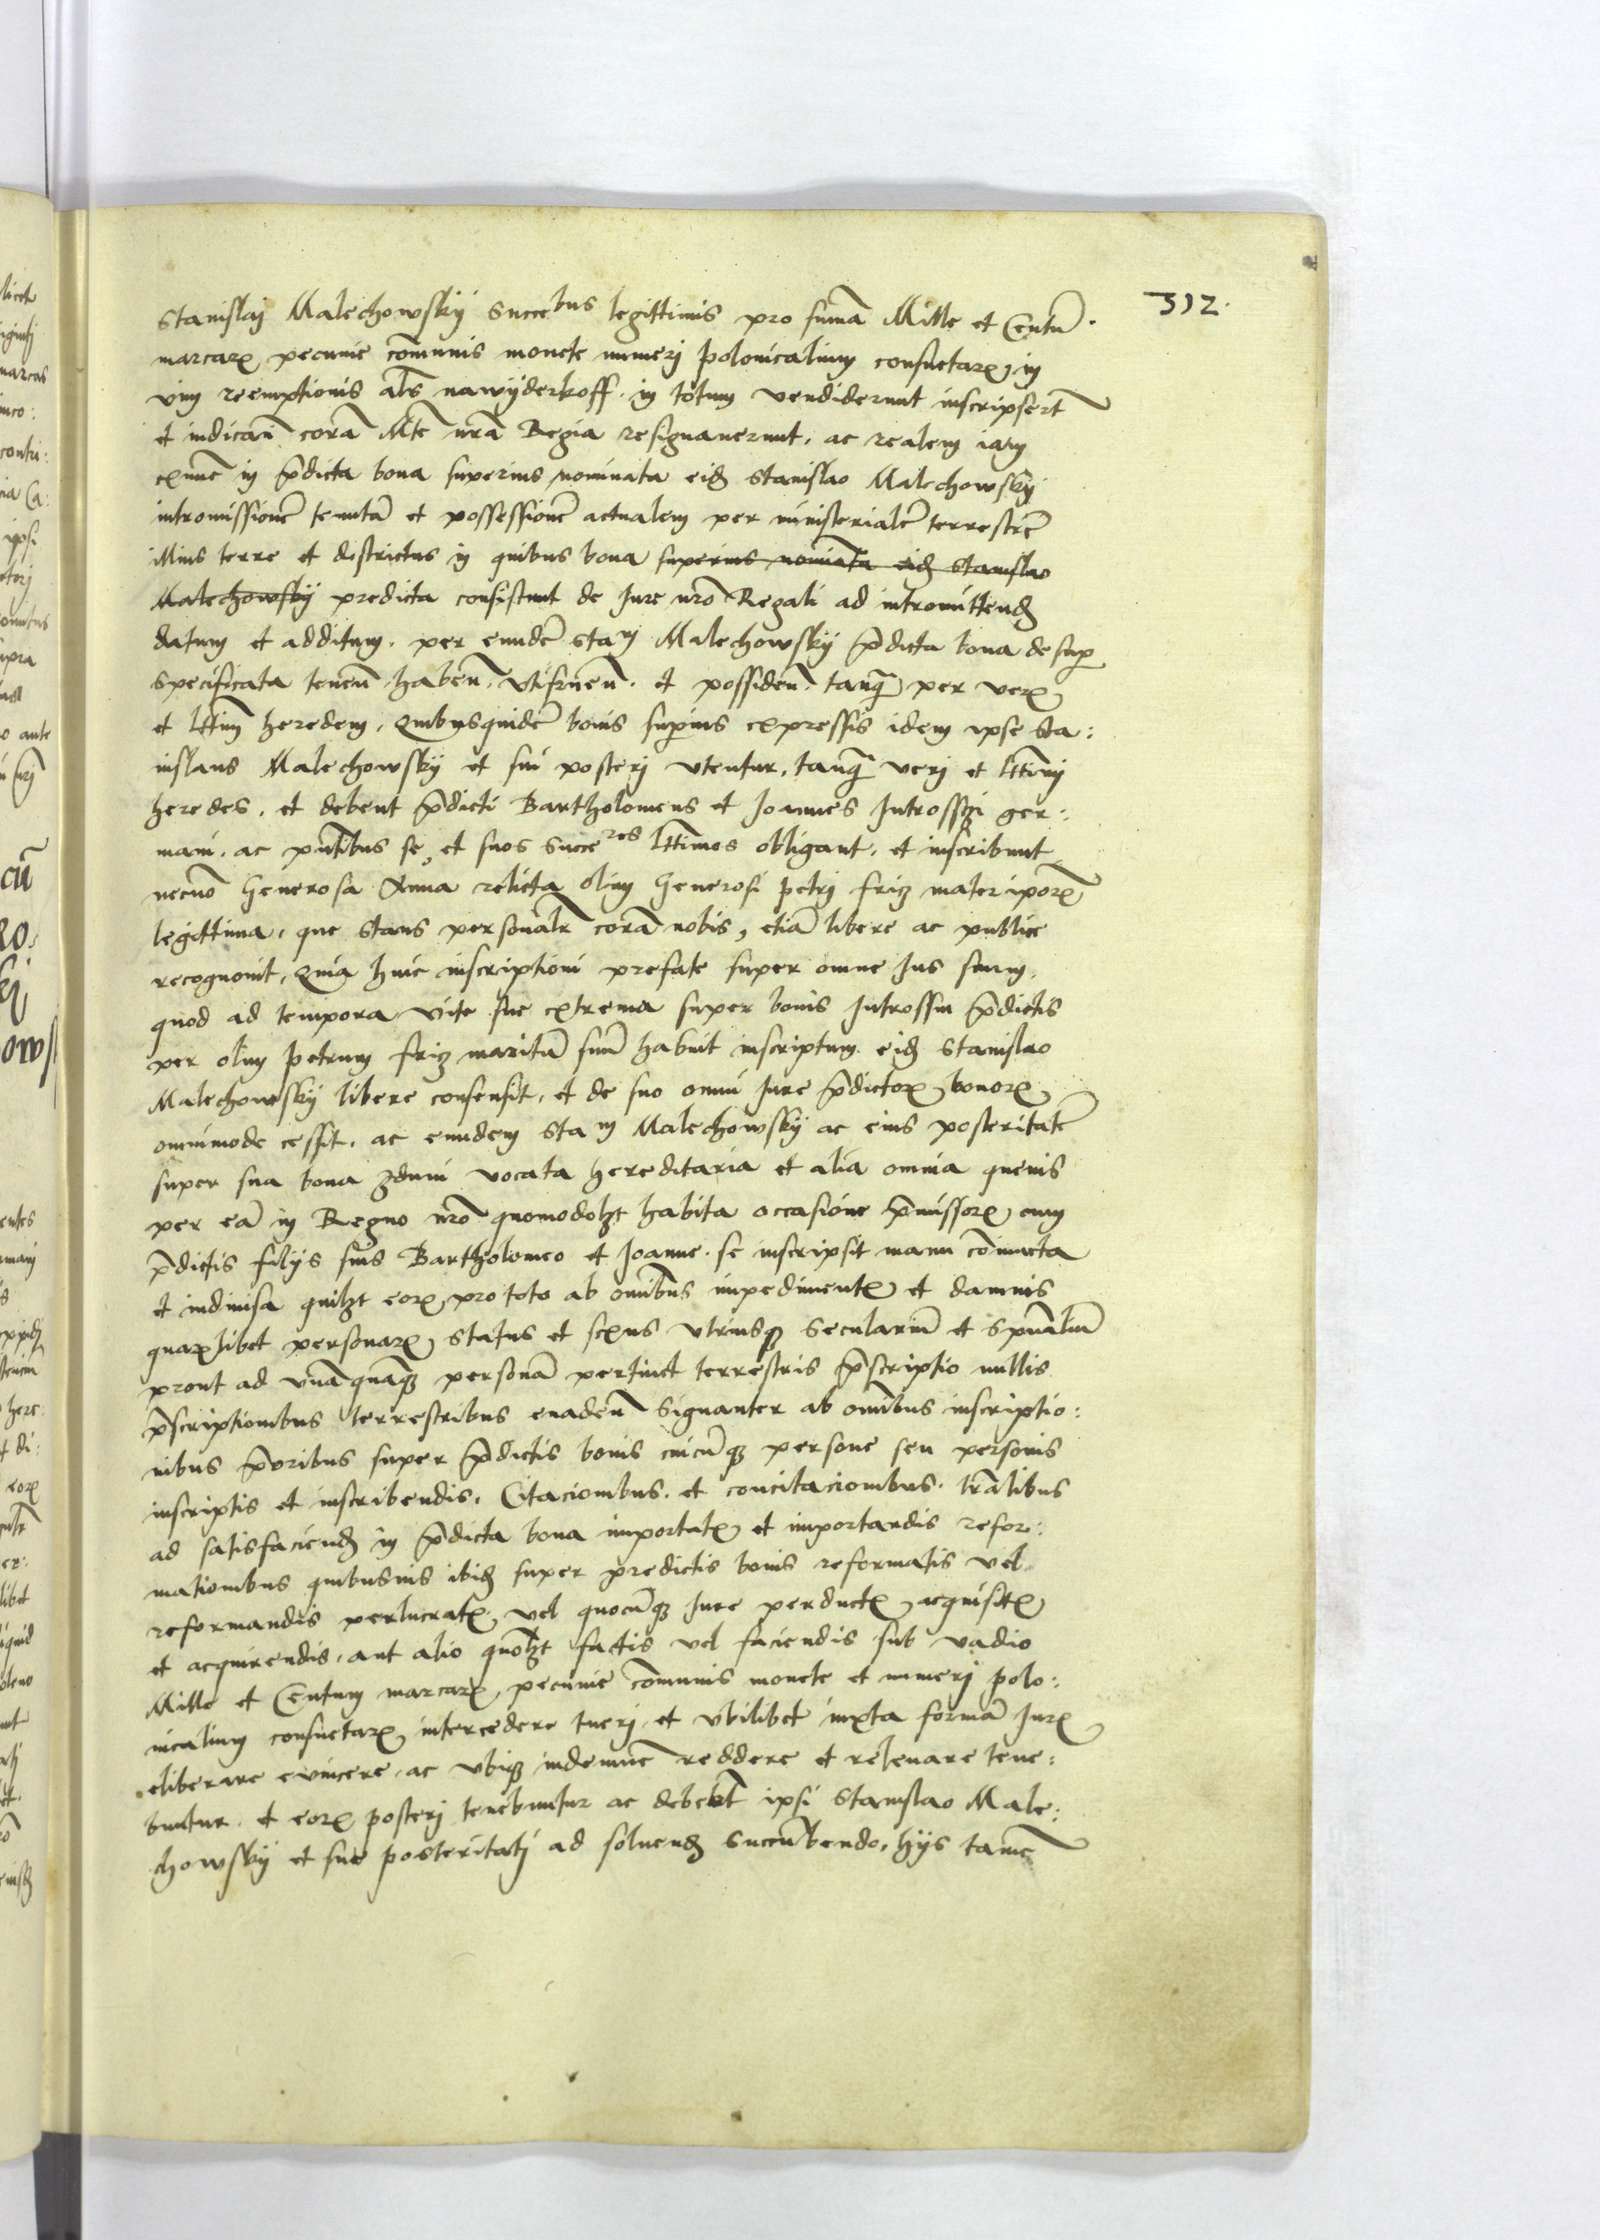 312.
Stanislaj Malechowskÿ Succe^bus legittimis pro sum̄a Mille et Centū.
marcarꝝ pecunie cōmunis monete numerj polonicalium consuetarꝝ in
vim reemptionis als̄ nawÿderkoff. in totum vendiderunt inscripser̄t
et corā Mte nr̄a Regia resignauerunt, ac realem iam
exnunc in p̄dicta bona superius nominata eidꝫ Stanislao Malechowskÿ
intromissionē tenutā et possessionē actualem per ministerialē terrestrē
illius terre et districtus in quibus bona superius nominata eidꝫ Stanislao
Malechowskÿ predicta consistunt de Jure nr̄o Regali ad intromittendꝫ
datum et additum. per eundē Sta^m Malechowskÿ p̄dicta bona desup̱
specificata tenen̄ haben̄. vtifruen̄. et possiden̄. tanqꝫ per verꝝ
et lttim̄ heredem, Quibusquidē bonis sup̱ius expressis idem ipse Sta:
nislaus Malechowskÿ et sui posterj vtentur, tanqꝫ verj et lttimj
heredes. et debent p̄dicti Bartholomeus et Joannes Jutrosskj ger:
mani. ac pn̄tibus se, et suos succe^res lttimos obligant. et inscribunt
necnō Generosa Anna relicta olim Generosi petrj friꝫ mater ipōrꝝ
legittima, que stans personalr̄ corā nobis, etiā libere ac publice
recognouit, Quia huic inscriptioni prefate super omne Jus suum
quod ad tempora vite sue extrema super bonis Jutrossin p̄dictis
per olim petrum friꝫ maritū suū habuit inscriptum. eidꝫ Stanislao
Malechowskÿ libere consensit, et de suo omni Jure p̄dictorꝝ bonorꝝ
omnimode cessit. ac eundem Sta^m Malechowskÿ ac eius posteritatē
super sua bona ꝫduni vocata hereditaria et alia omnia queuis
per eā in Regno nr̄o quomodolꝫt habita occasione p̄missorꝝ cum
p̄dictis filijs suis Bartholomeo et Joanne. se inscripsit manu cōiuncta
et indiuisa quilꝫt eorꝝ pro toto ab om̄ibus impedimentꝝ et damnis
quarꝝlibet personarꝝ status et sexus vtriusqꝫ Seculariū et Spūaliū
prout ad vnāquāqꝫ personā pertinet terrestris p̄scriptio nullis
p̄scriptionibus terrestribus euaden̄ Signanter ab om̄ibus inscriptio:
nibus p̄oribus super p̄dictis bonis cuicūqꝫ persone seu personis
inscriptis et inscribendis. Citacionibus. et concitacionibus. lr̄alibus
ad satisfaciendꝫ in p̄dicta bona importatꝝ et importandis refor:
mationibus quibusuis ibidꝫ super predictis bonis reformatis vel
reformandis perlucratꝝ vel quocūqꝫ Jure perductꝝ acquisitꝝ
et acquirendis, aut alio quolꝫt factis vel faciendis sub vadio
Mille et Centum marcarꝝ pecunie cōmunis monete et numerj polo:
nicalium consuetarꝝ intercedere tuerj et vbilibet iuxta formā Jurꝝ
eliberare euincere. ac vbiqꝫ indemnē reddere et releuare tene:
buntur. et eorꝝ posterj tenebuntur ac debebt̄ ipsi Stanislao Male:
chowskÿ et sue posteritatj ad soluendꝫ succūbendo, hÿs tamē